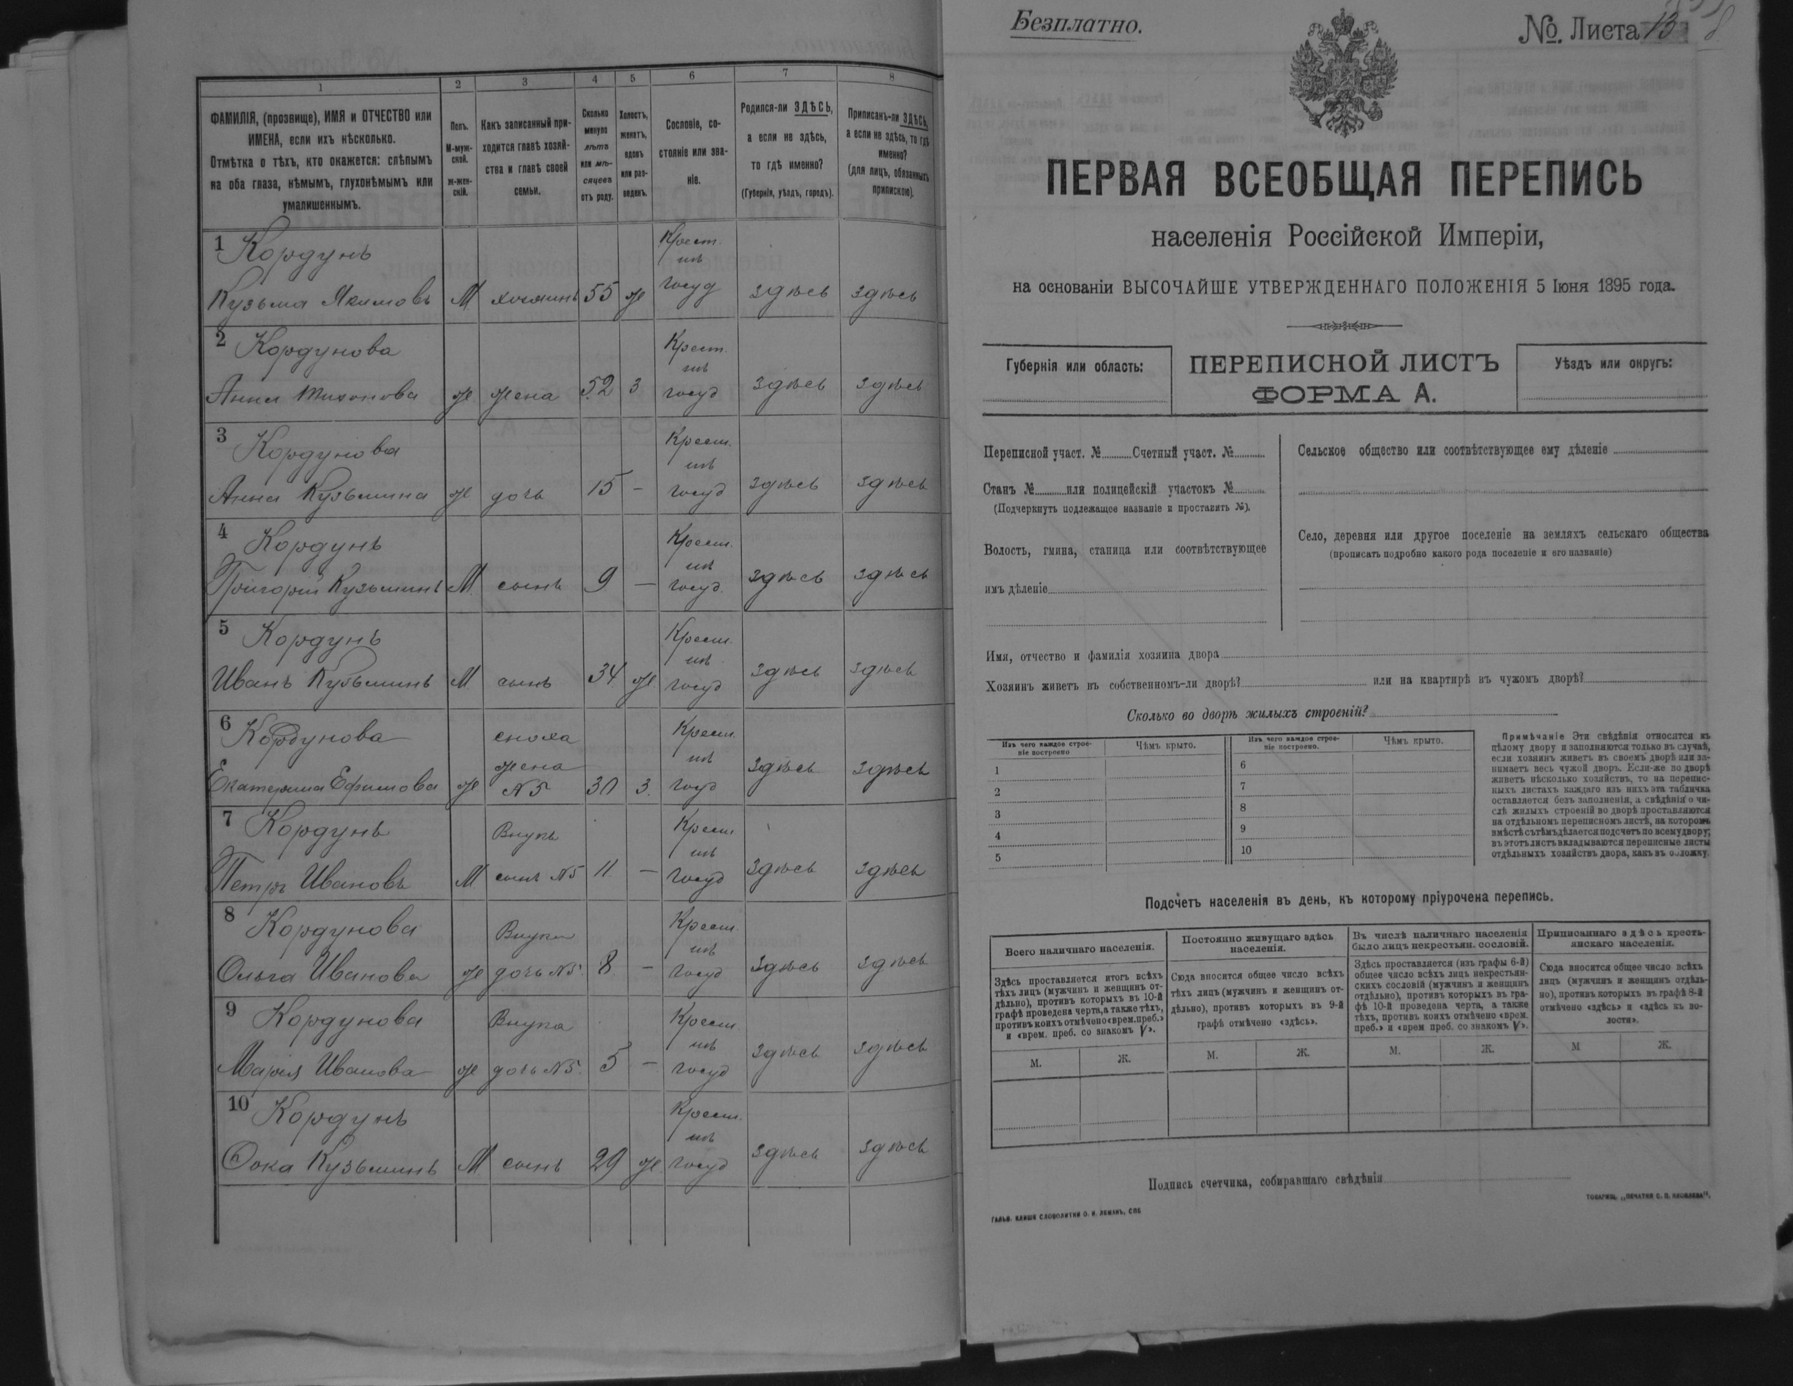 1
2
3
4
5
6
7
8
ФАМИЛІЯ, (прозвище), ИМЯ и ОТЧЕСТВО или
ИМЕНА, если ихъ нѣсколько.
Отмѣтка о тѣхъ, кто окажется: слѣпымъ
на оба глаза, нѣмымъ, глухонѣмымъ или
умалишеннымъ.
Полъ.
М-муж-
ской.
ж-жен-
скій.
Какъ записанный при-
ходится главѣ хозяй-
ства и главѣ своей
семьи.
Сколько
минуло
лѣтъ
или мѣ-
сяцевъ
отъ роду.
Холостъ,
женатъ,
вдовъ
или раз-
веденъ.
Сословіе, со-
стояніе или зва-
ніе.
Родился-ли ЗДѢСЬ,
а если не здѣсь,
то гдѣ именно?
(Губернія, уѣздъ, городъ).
Приписанъ-ли ЗДѢСЬ,
а если не здѣсь, то гдѣ
именно?
(для лицъ, обязанныхъ
припискою).
1 Кордунъ Крест.
изъ
Кузьма Якимовъ М хозяинъ 55 ж госуд здѣсь здѣсь
2 Кордунова Крест.
изъ
Анна Тихонова ж жена 52 з госуд здѣсь здѣсь
3 Кордунова Крест.
изъ
Анна Кузьмина ж дочь 15 – госуд здѣсь здѣсь
4 Кордунъ Крест.
изъ
Григорій Кузьминъ М сынъ 9 – госуд здѣсь здѣсь
5 Кордунъ Крест.
изъ
Иванъ Кузьминъ М сынъ 34 ж госуд здѣсь здѣсь
6 Кордунова сноха Крест.
жена изъ
Екатерина Ефимова ж N5 30 з. госуд здѣсь здѣсь
7 Кордунъ Внукъ Крест.
изъ
Петръ Ивановъ М сынъ N5 11 – госуд здѣсь здѣсь
8 Кордунова Внука Крест.
изъ
Ольга Иванова ж дочь N5. 8 – госуд здѣсь здѣсь
9 Кордунова Внука Крест.
изъ
Марія Иванова ж дочь N5. 5 – госуд здѣсь здѣсь
10 Кордунъ Крест.
изъ
Фока Кузьминъ М сынъ 29 ж госуд здѣсь здѣсь
Безплатно.
№ Листа 13
ПЕРВАЯ ВСЕОБЩАЯ ПЕРЕПИСЬ
населенія Россійской Имперіи,
на основаніи ВЫСОЧАЙШЕ УТВЕРЖДЕННАГО ПОЛОЖЕНІЯ 5 Іюня 1895 года.
Губернія или область:
ПЕРЕПИСНОЙ ЛИСТЪ
ФОРМА А.
Уѣздъ или округъ:
Переписной участ. № Счетный участ. №
Станъ № или полицейскій участокъ №
(Подчеркнуть подлежащое названіе и проставить №).
Волость, гмина, станица или соотвѣтствующее
имъ дѣленіе
Сельское общество или соотвѣтствующее ему дѣленіе
Село, деревня или другое поселеніе на земляхъ сельскаго общества
(прописать подробно какого рода поселеніе и его названіе)
Имя, отчество и фамилія хозяина двора
Хозяинъ живетъ въ собственномъ-ли дворѣ? или на квартирѣ въ чужомъ дворѣ?
Сколько во дворѣ жилыхъ строеній?
Изъ чего каждое строе-
ніе построено
Чѣмъ крыто.
Изъ чего каждое строе-
ніе построено.
Чѣмъ крыто.
1
2
3
4
5
6
7
8
9
10
Примѣчаніе Эти свѣдѣнія относятся къ
цѣлому двору и заполняются только въ случаѣ,
если хозяинъ живетъ въ своемъ дворѣ или за-
нимаетъ весь чужой дворъ. Если-же во дворѣ
живетъ нѣсколько хозяйствъ, то на перепис-
ныхъ листахъ каждаго изъ нихъ эта табличка
оставляется безъ заполненія, а свѣдѣнія о чи-
слѣ жилыхъ строеній во дворѣ проставляются
на отдѣльномъ переписномъ листѣ, на которомъ
вмѣстѣ съ тѣмъ дѣлается подсчетъ по всему двору;
въ этотъ листъ вкладываются переписные листы
отдѣльныхъ хозяйствъ двора, какъ въ обложку.
Подсчетъ населенія въ день, къ которому пріурочена перепись.
Всего наличнаго населенія.
Здѣсь проставляется итогъ всѣхъ
тѣхъ лицъ (мужчинъ и женщинъ от-
дѣльно), противъ которыхъ въ 10-й
графѣ проведена черта, а также тѣхъ,
противъ коихъ отмѣчено «врем. преб.»
и «врем. преб. со знакомъ V».
Постоянно живущаго здѣсь
населенія.
Сюда вносится общее число всѣхъ
тѣхъ лицъ (мужчинъ и женщинъ от-
дѣльно), противъ которыхъ въ 9-й
графѣ отмѣчено «здѣсь».
Въ числѣ наличнаго населенія
было лицъ некрестьян. сословій.
Здѣсь проставляется (изъ графы 6-й)
общее число всѣхъ лицъ некрестьян-
скихъ сословій (мужчинъ и женщинъ
отдѣльно), противъ которыхъ въ гра-
фѣ 10-й проведена черта, а также
тѣхъ, противъ коихъ отмѣчено «врем.
преб.» и «врем преб. со знакомъ V».
Приписаннаго здѣсь кресть-
янскаго населенія.
Сюда вносится общее число всѣхъ
лицъ (мужчинъ и женщинъ отдѣль-
но), противъ которыхъ въ графѣ 8-й
отмѣчено «здѣсь» и «здѣсь въ во-
лости».
М. Ж. М. Ж. М. Ж. М Ж.
Подпись счетчика, собиравшаго свѣдѣнія
ГАЛЬВ. КЛИШЕ СЛОВОЛИТНИ О. И. ЛЕМАНЪ, СПБ
ТОВАРИЩ. „ПЕЧАТНЯ С. П. ЯКОВЛЕВА“.